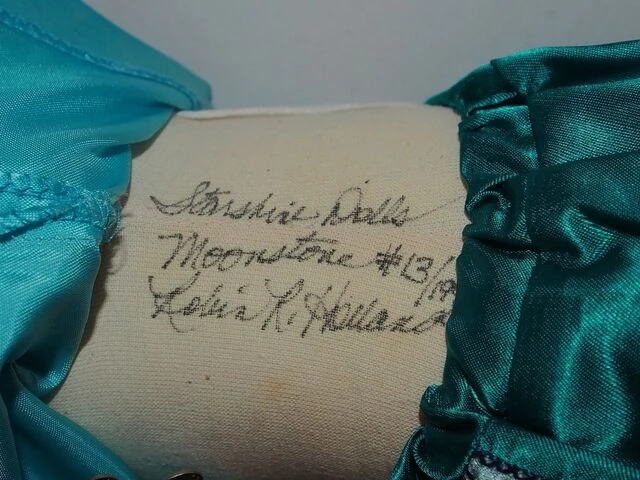 Starshine Dolls
Moonstone #13/
Robin R. Holland